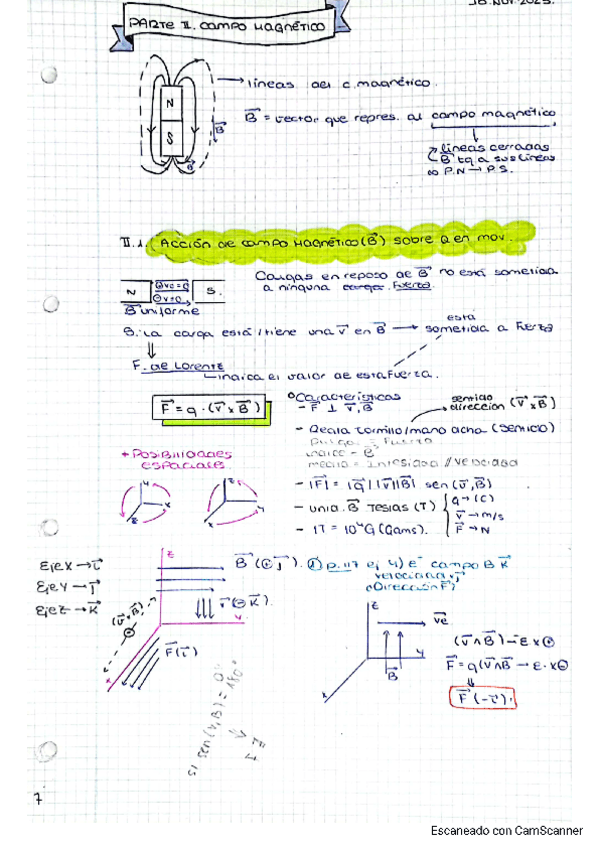 16.NOV.2023.
PARTE II. CAMPO MAGNÉTICO
N
S
B⃗
B⃗
líneas del c. magnético.
B⃗ = vector que repres. al campo magnético
líneas cerradas
B⃗ tg a sus líneas
P.N → P.S.
II.1. Acción de campo magnético (B⃗) sobre Q en mov.
N
S.
B⃗ uniforme
Cargas en reposo de B⃗ no está sometida
a ninguna carga. Fuerza.
S. la carga está/tiene una v⃗ en B⃗ → está sometida a Fuerza
F. de Lorente
indica el valor de esta fuerza.
F⃗ = q · (v⃗ x B⃗)
Características
- F⃗ ⊥ v⃗, B⃗
sentido
dirección (v⃗ x B⃗)
- Regla tornillo/mano dcha (sentido)
pulgar = Fuerza
índice = e⁻
medio = Intesidad // velocidad
- |F⃗| = |q⃗| |v⃗||B⃗| sen (v⃗, B⃗)
- unid. B⃗ Teslas (T)
q → (C)
v⃗ → m/s
F⃗ → N
- 1T = 10⁴G (Gams).
+ POSIBILIDADES
ESPACIALES
y
x
z
y
x
Eje X → i⃗
Eje Y → j⃗
Eje Z → k⃗
z
B⃗ (⊕ j⃗).
v⃗ (⊖ k⃗).
(v⃗ x B⃗)
F⃗ (i⃗)
y
x
si sen (v, B) = 0° 180°
① p. 117 ej 4) e⁻ campo B k⃗
velocidad v j⃗
¿Dirección F?
z
v⃗e
y
B⃗
x
(v⃗ ∧ B⃗) → E x ⊕
F⃗ = q (v⃗ ∧ B⃗ → E · x ⊖
F⃗ (-i⃗).
7
Escaneado con CamScanner